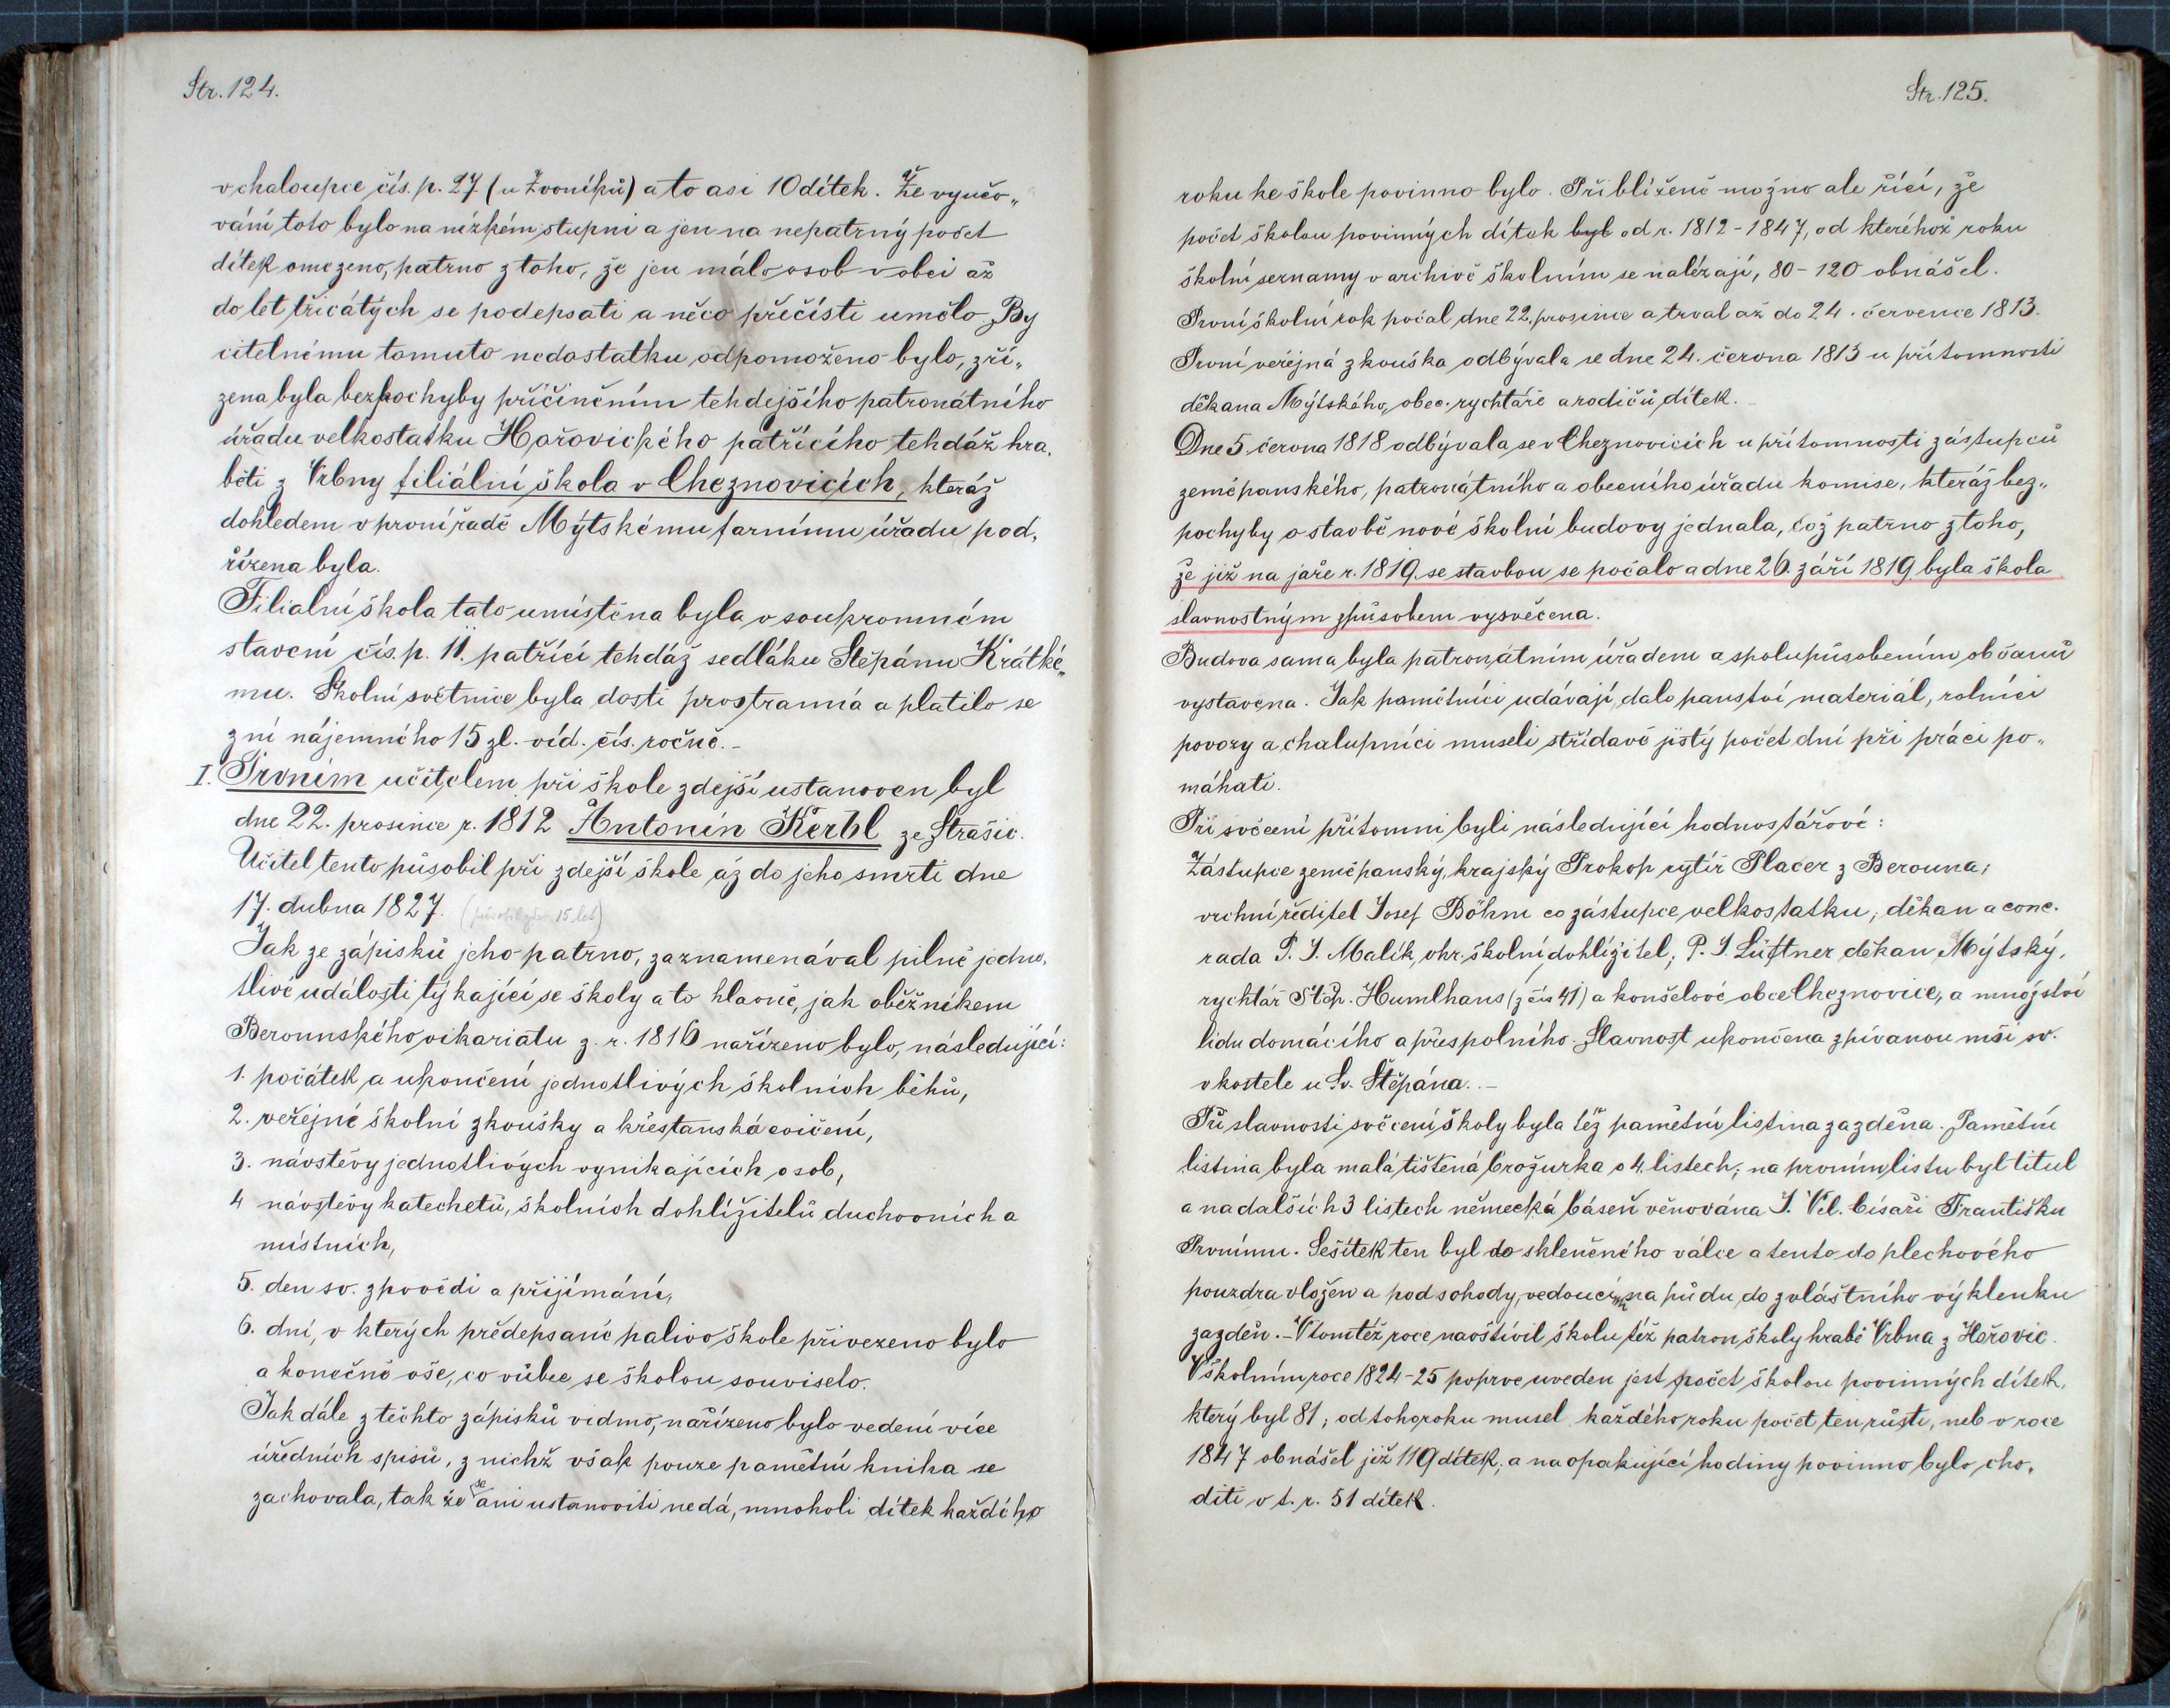 Str. 124.
v chaloupce čís. p. 27. (u Zvoníků) a to asi 10 dítek. Že vyučo„
vání toto bylo na nízkém stupni a jen na nepatrný počet
dítek omezeno, patrno z toho, že jen málo osob v obci až
do let třicátých se podepsati a něco přečísti umělo. By
citelnému tomuto nedostatku odpomoženo bylo, zří„
zena byla bezpochyby přičiněním tehdejšího patronátního
úřadu velkostatku Hořovického patřícího tehdáž hra„
běti z Vrbny filiální škola v Cheznovicích, kteráž
dohledem v první řadě Mýtskému farnímu úřadu pod„
řízena byla.
Filialní škola tato umístěna byla v soukromném
stavení čís. p. 11. patřící tehdáž sedláku Štěpánu Krátké„
mu. Školní světnice byla dosti prostranná a platilo se
z ní nájemného 15 zl. víd. čís. ročně. –
I. Prvním učitelem při škole zdejší ustanoven byl
dne 22. prosince r. 1812 Antonín Kerbl ze Strašic.
Učitel tento působil při zdejší škole až do jeho smrti dne
17. dubna 1827. (působil zde 15 let)
Jak ze zápisků jeho patrno, zaznamenával pilně jedno„
tlivé události týkající se školy a to hlavně, jak oběžníkem
Berounského vikariatu z. r. 1816 nařízeno bylo, následující:
1. počátek a ukončení jednotlivých školních běhů,
2. veřejné školní zkoušky a křesťanská cvičení,
3. návštěvy jednotlivých vynikajících osob,
4 návštěvy katechetů, školních dohlížitelů duchovních a
místních,
5. den sv. zpovědi a přijímání,
6. dní, v kterých předepsané palivo škole přivezeno bylo
a konečně vše, co vůbec se školou souviselo.
Jak dále z těchto zápisků vidno, nařízeno bylo vedení více
úředních spisů, z nichž však pouze pamětní kniha se
zachovala, tak že se ani ustanoviti nedá, mnoholi dítek každého
Str. 125.
roku ke škole povinno bylo. Přibliženě možno ale říci, že
počet školou povinných dítek byl od r. 1812-1847, od kteréhož roku
školní seznamy v archivě školním se nalézají, 80-120 obnášel.
První školní rok počal dne 22. prosince a trval až do 24. července 1813.
První veřejná zkouška odbývala se dne 24. června 1813 u přítomnosti
děkana Mýtského, obec. rychtáře a rodičů dítek. –
Dne 5. června 1818 odbývala se v Cheznovicích u přítomnosti zástupců
zeměpanského, patronátního a obecního úřadu komise, kteráž bez„
pochyby o stavbě nové školní budovy jednala, což patrno z toho,
že již na jaře r. 1819. se stavbou se počalo a dne 26. září 1819 byla škola
slavnostným způsobem vysvěcena.
Budova sama byla patronátním úřadem a spolupůsobením občanů
vystavena. Jak pamětníci udávají, dalo panství materiál, rolníci
povozy a chalupníci museli střídavě jistý počet dní při práci po„
máhati.
Při svěcení přítomni byli následující hodnostářové:
Zástupce zeměpanský, krajský Prokop rytíř Placer z Berouna;
vrchní ředitel Josef Böhm co zástupce velkostatku; děkan a conc.
rada P. J. Malík, okr. školní dohlížitel; P. J. Lüftner děkan Mýtský,
rychtář Štěp. Humlhans (z čís 41) a konšelové obce Cheznovice, a množství
lidu domácího a přespolního. Slavnost ukončena zpívanou mší sv.
v kostele u Sv. Štěpána. –
Při slavnosti svěcení školy byla též pamětní listina zazděna. Pamětní
listina byla malá tištěná brožurka o 4 listech; na prvním listu byl titul
a na dalších 3 listech německá báseň věnována J. Vel. Císaři Františku
Prvnímu. Sešítek ten byl do skleněného válce a tento do plechového
pouzdra vložen a pod schody, vedoucími na půdu, do zvláštního výklenku
zazděn. – V tomtéž roce navštívil školu též patron školy hrabě Vrbna z Hořovic.
V školním roce 1824-25 poprve uveden jest počet školou povinných dítek,
který byl 81; od toho roku musel každého roku počet ten růsti, neb v roce
1847 obnášel již 119 dítek; a na opakující hodiny povinno bylo cho„
diti v t. r. 51 dítek.